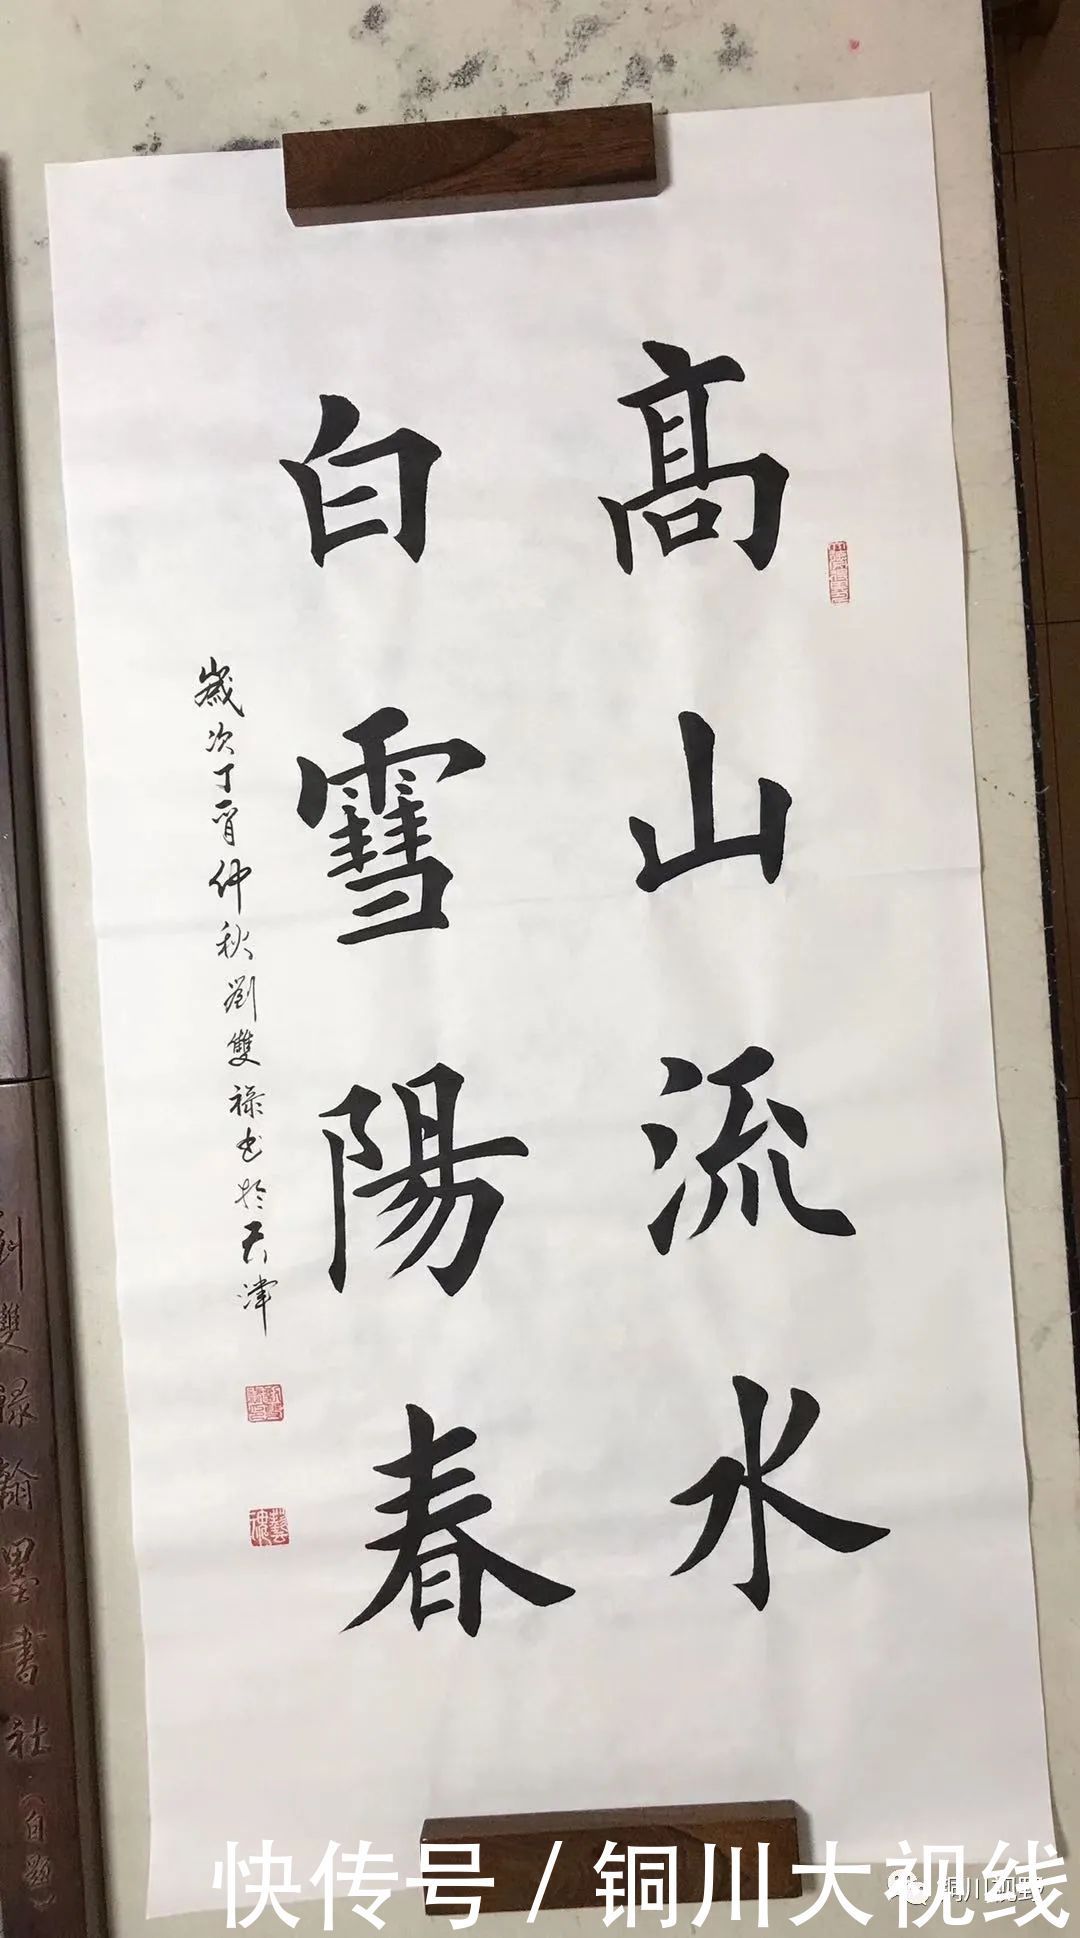 高山流水
白雪陽春
歲次丁酉仲秋劉雙祿书於天津
藝魂
劉雙祿翰墨書社（自題）
快传号/铜川大视线
铜川视野